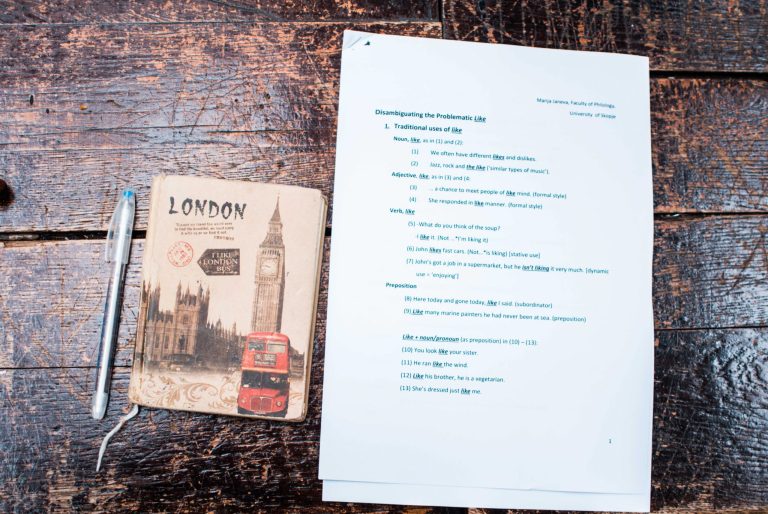 LONDON
I LIKE
LONDON
BUS
Marija Janeva, Faculty of Philology,
University of Skopje
Disambiguating the Problematic Like
1. Traditional uses of like
Noun, like, as in (1) and (2):
(1) We often have different likes and dislikes.
(2) Jazz, rock and the like ('similar types of music').
Adjective, like, as in (3) and (4:
(3) .. a chance to meet people of like mind. (formal style)
(4) She responded in like manner. (formal style)
Verb, like
(5) - What do you think of the soup?
-I like it. (Not ...*I'm liking it)
(6) John likes fast cars. (Not...*is liking) [stative use]
(7) John's got a job in a supermarket, but he isn't liking it very much. [dynamic
use = 'enjoying']
Preposition
(8) Here today and gone today, like I said. (subordinator)
(9) Like many marine painters he had never been at sea. (preposition)
Like + noun/pronoun (as preposition) in (10) – (13):
(10) You look like your sister.
(11) He ran like the wind.
(12) Like his brother, he is a vegetarian.
(13) She's dressed just like me.
1